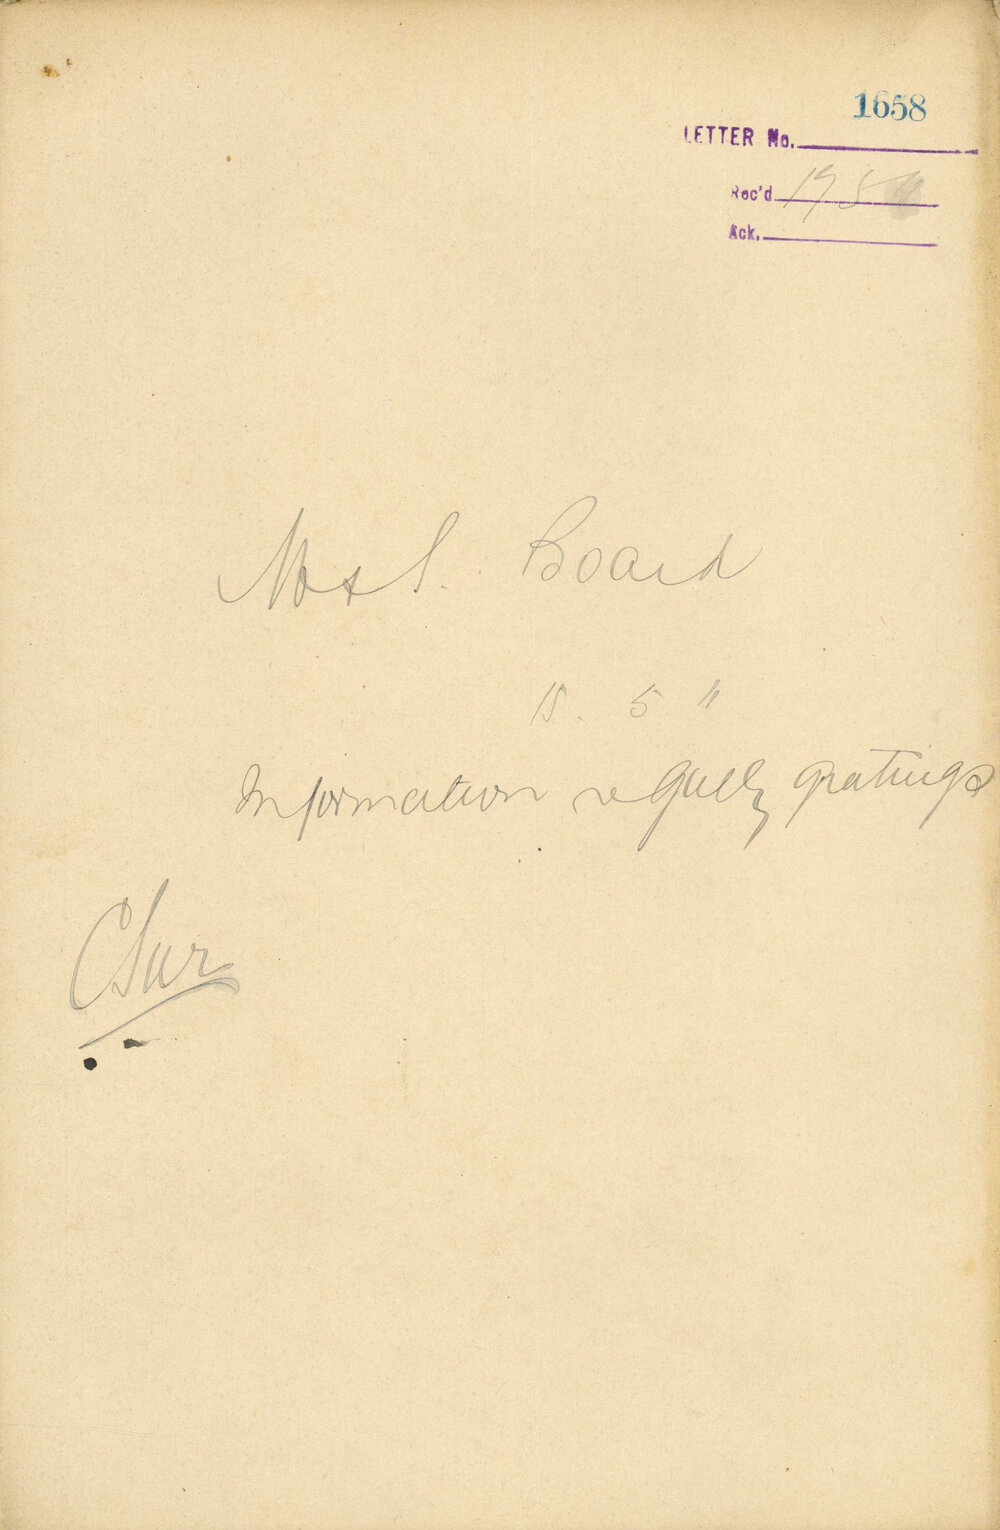 1658
LETTER No.
Rec'd 19 5
Ack.
M & S. Board
18. 5 "
Information re Gully Gratings
CSur